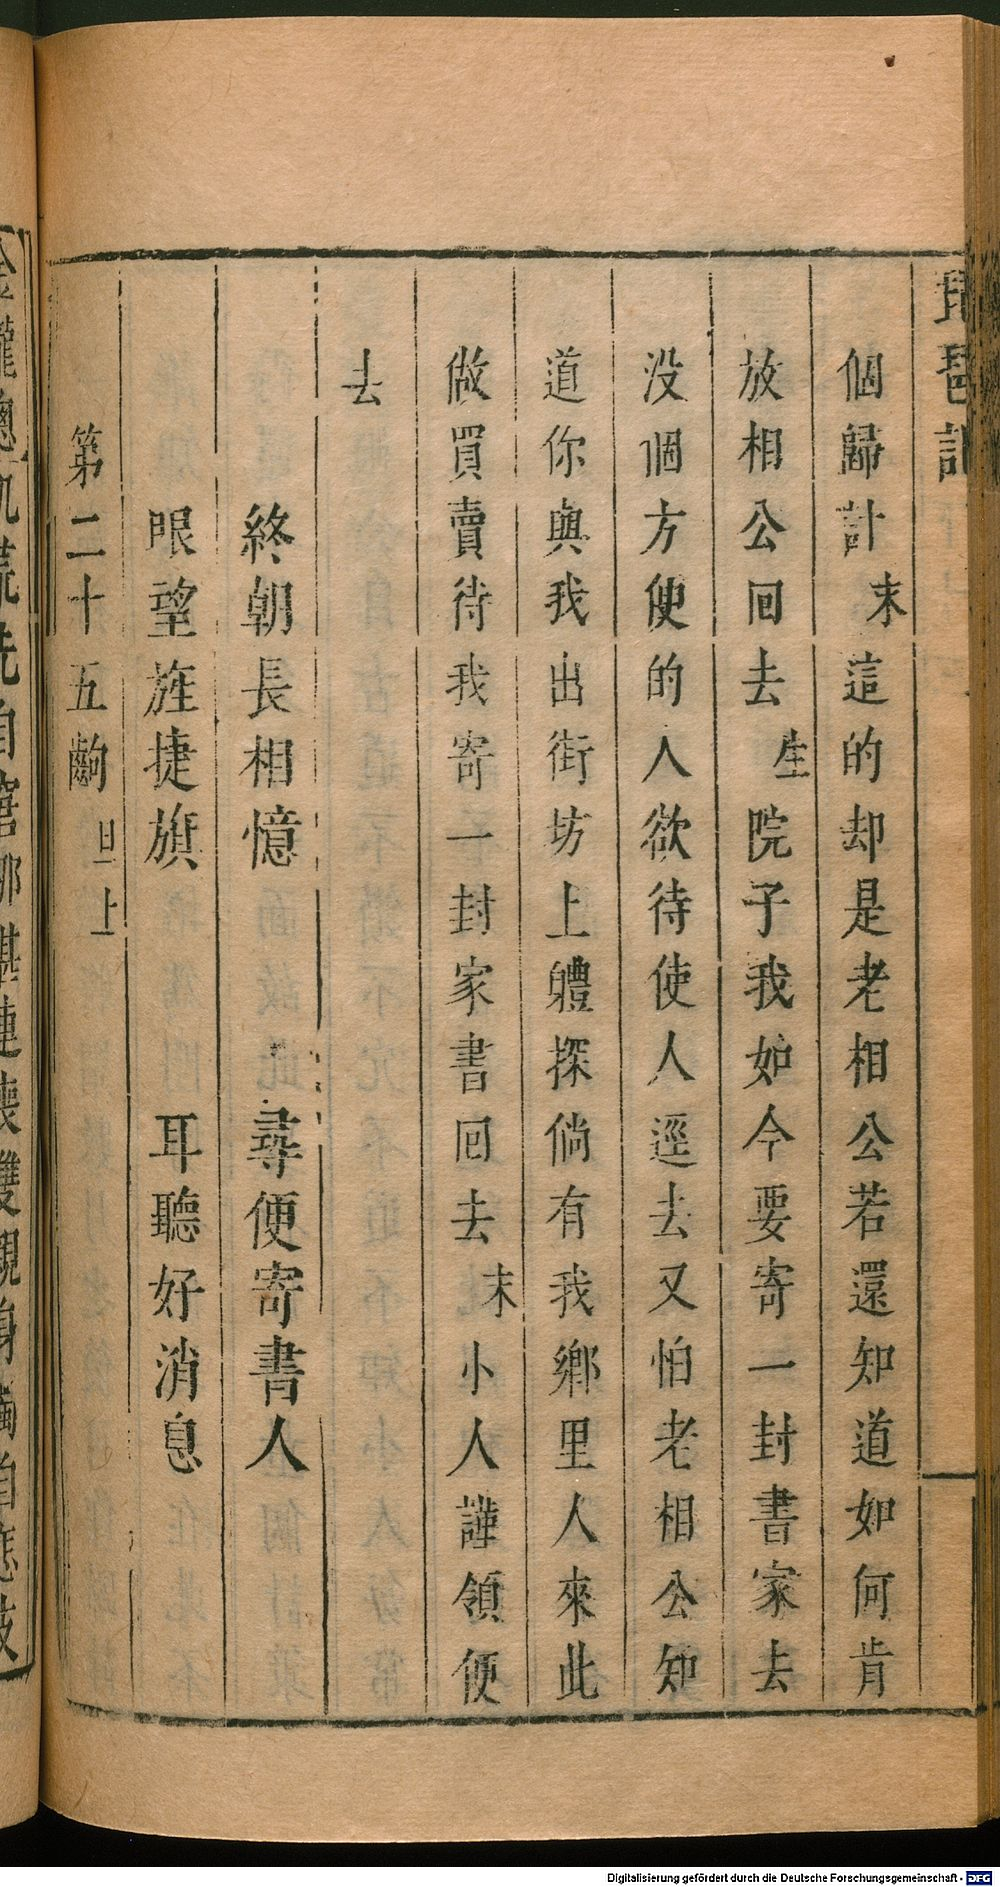 琵琶記
個歸計末這的却是老相公若還知道如何肯
放相公回去生院子我如今要寄一封書家去
没個方便的人欲待使人逕去又怕老相公知
道你與我出街坊上軆探倘有我鄉里人來此
做買賣待我寄一封家書回去末小人謹領便
去
終朝長相憶 尋便寄書人
眼望旌捷旗 耳聽好消息
第二十五齣旦上
自 連 雙親身 自
Digitalisierung gefördert durch die Deutsche Forschungsgemeinschaft - DFG